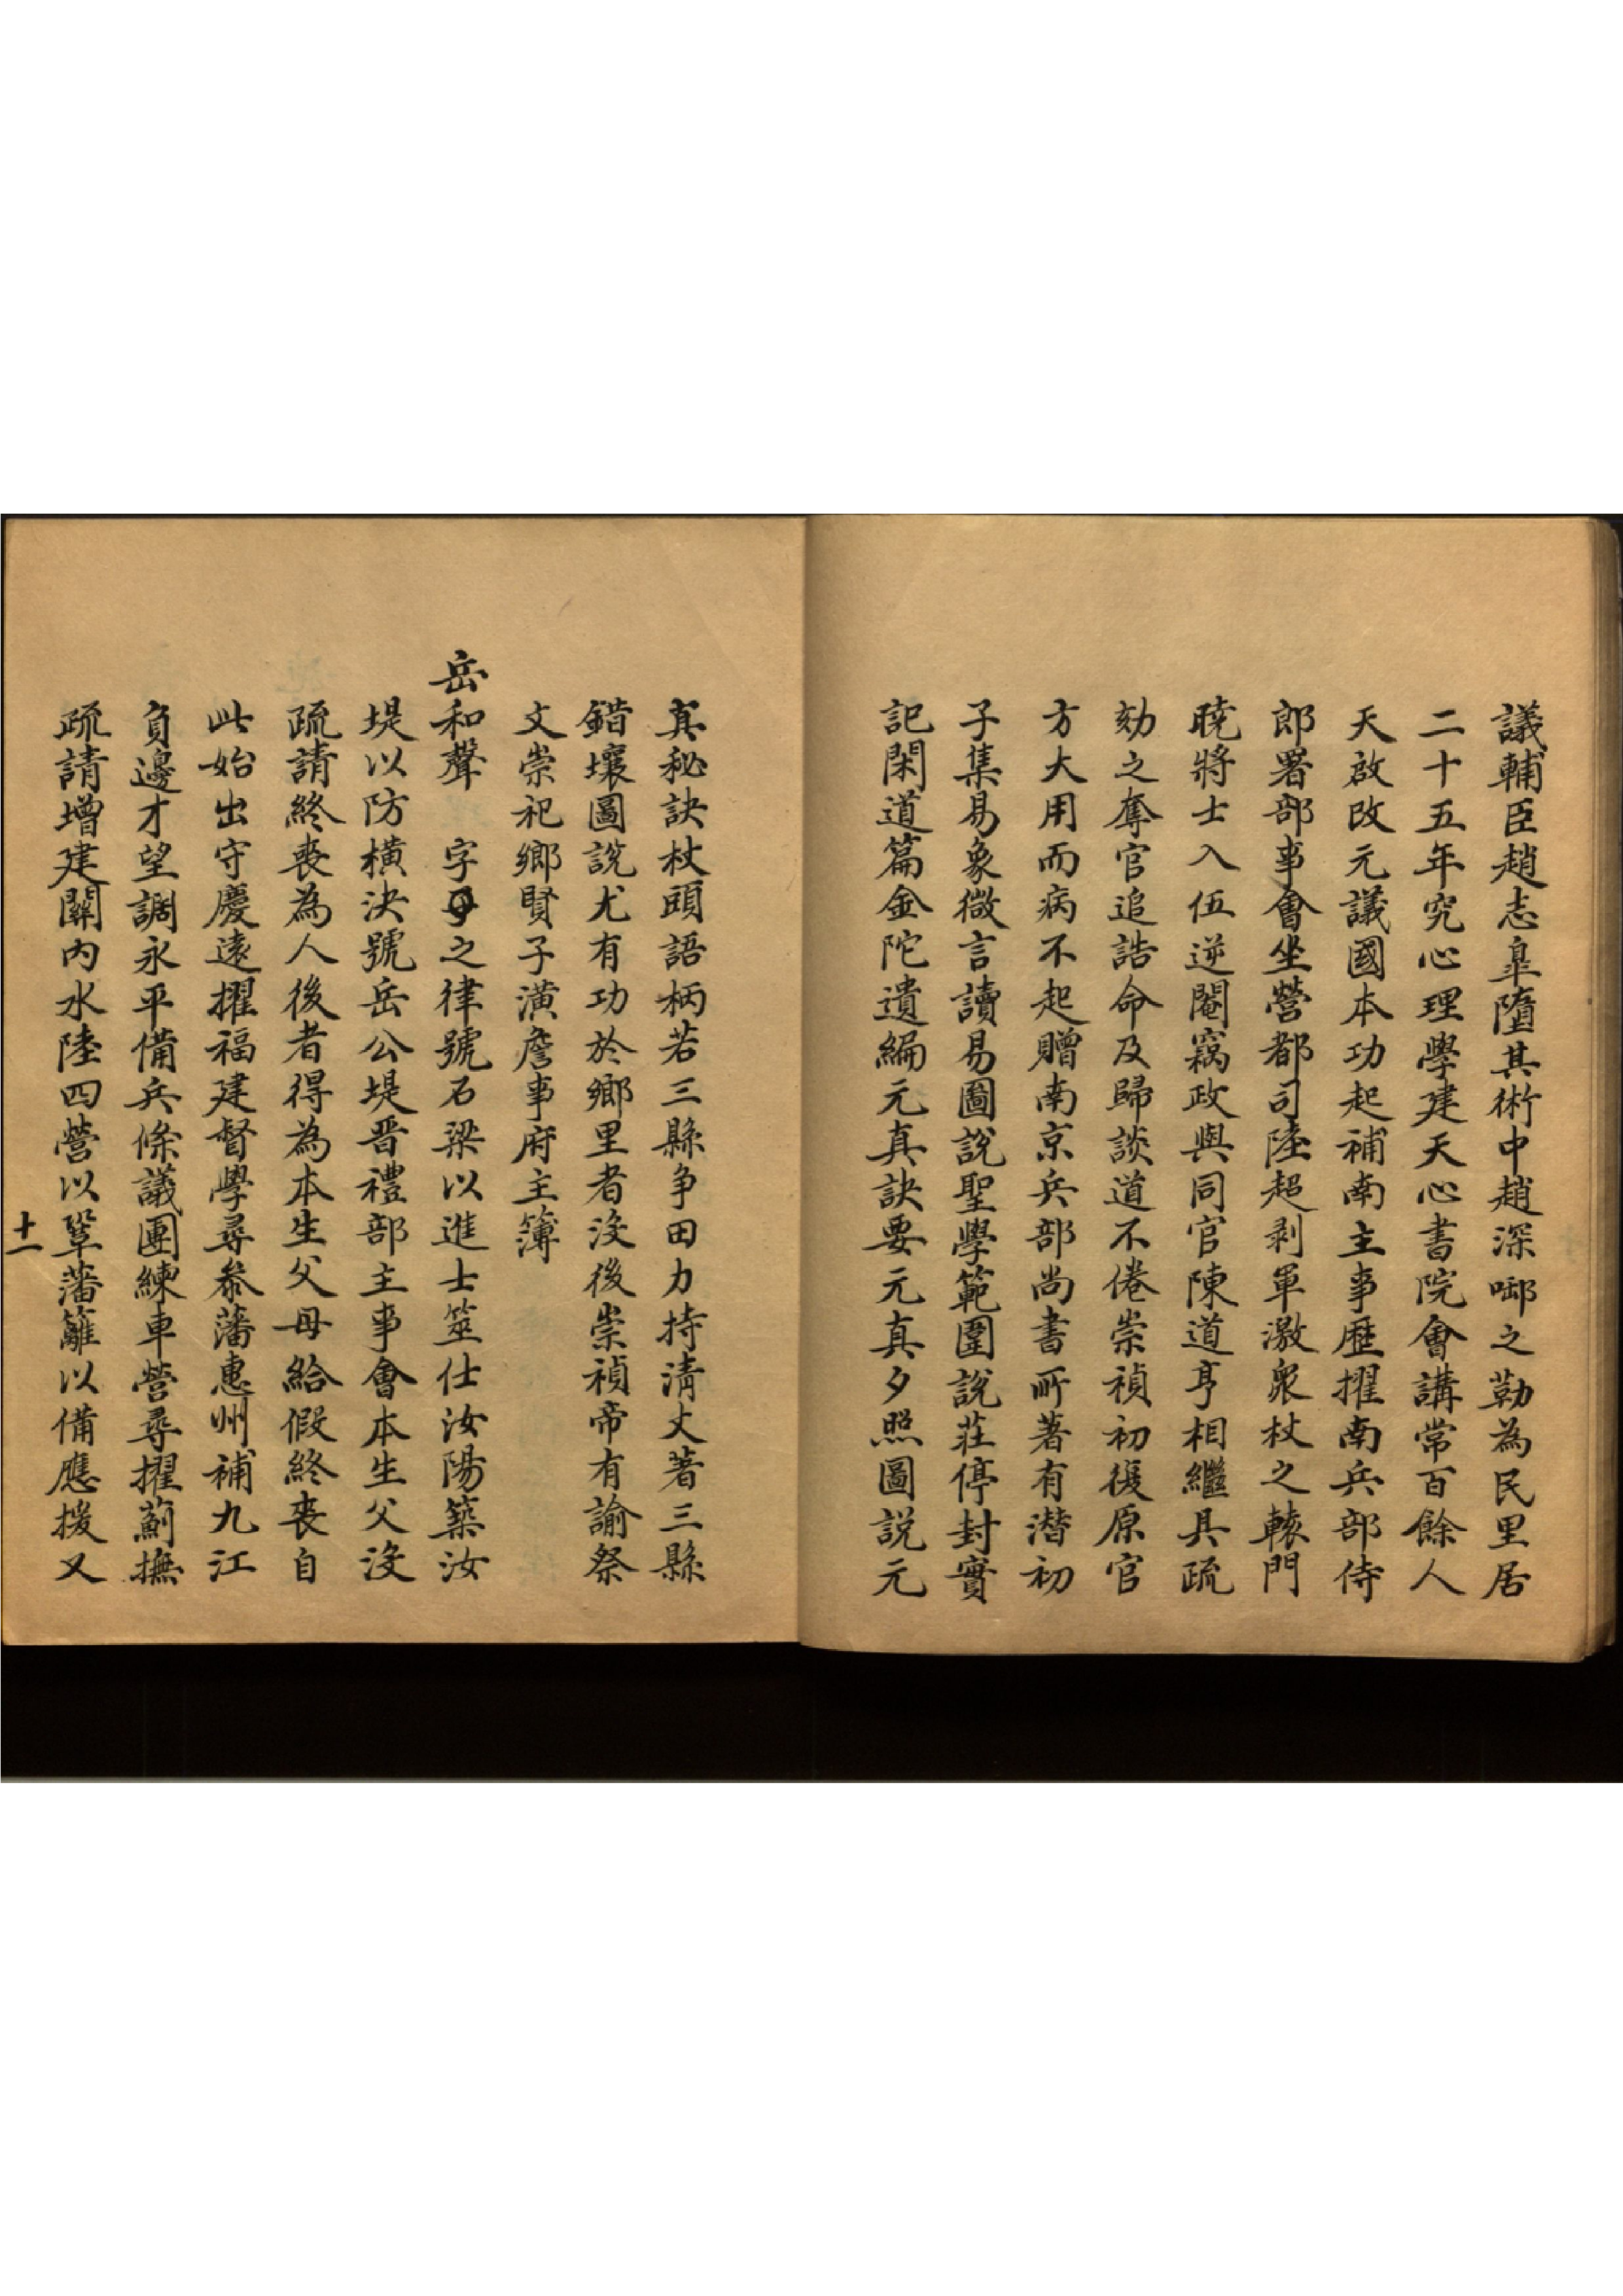 議輔臣趙志臯墮其術中趙深啣之勒為民里居
二十五年究心理學建天心書院會講常百餘人
天啟改元議國本功起補南主事歷擢南兵部侍
郎署部事會坐營都司陸超剥軍激衆杖之轅門
曉將士入伍逆閹竊政與同官陳道亨相繼具疏
劾之奪官追誥命及歸談道不倦崇禎初復原官
方大用而病不起贈南京兵部尚書所著有潛初
子集易象微言讀易圖說聖學範圍說莊停封實
記閑道篇金陀遺編元真訣要元真夕照圖說元
真秘訣杖頭語柄若三縣争田力持清丈著三縣
錯壤圖說尤有功於鄉里者沒後崇禎帝有諭祭
文崇祀鄉賢子潢詹事府主簿
岳和聲 字之律號石梁以進士筮仕汝陽築汝
堤以防橫決號岳公堤晋禮部主事會本生父沒
疏請終喪為人後者得為本生父母給假終喪自
此始出守慶遠擢福建督學尋叅藩惠州補九江
負邊才望調永平備兵條議團練車營尋擢薊撫
疏請增建關内水陸四營以鞏藩籬以備應援又
十一